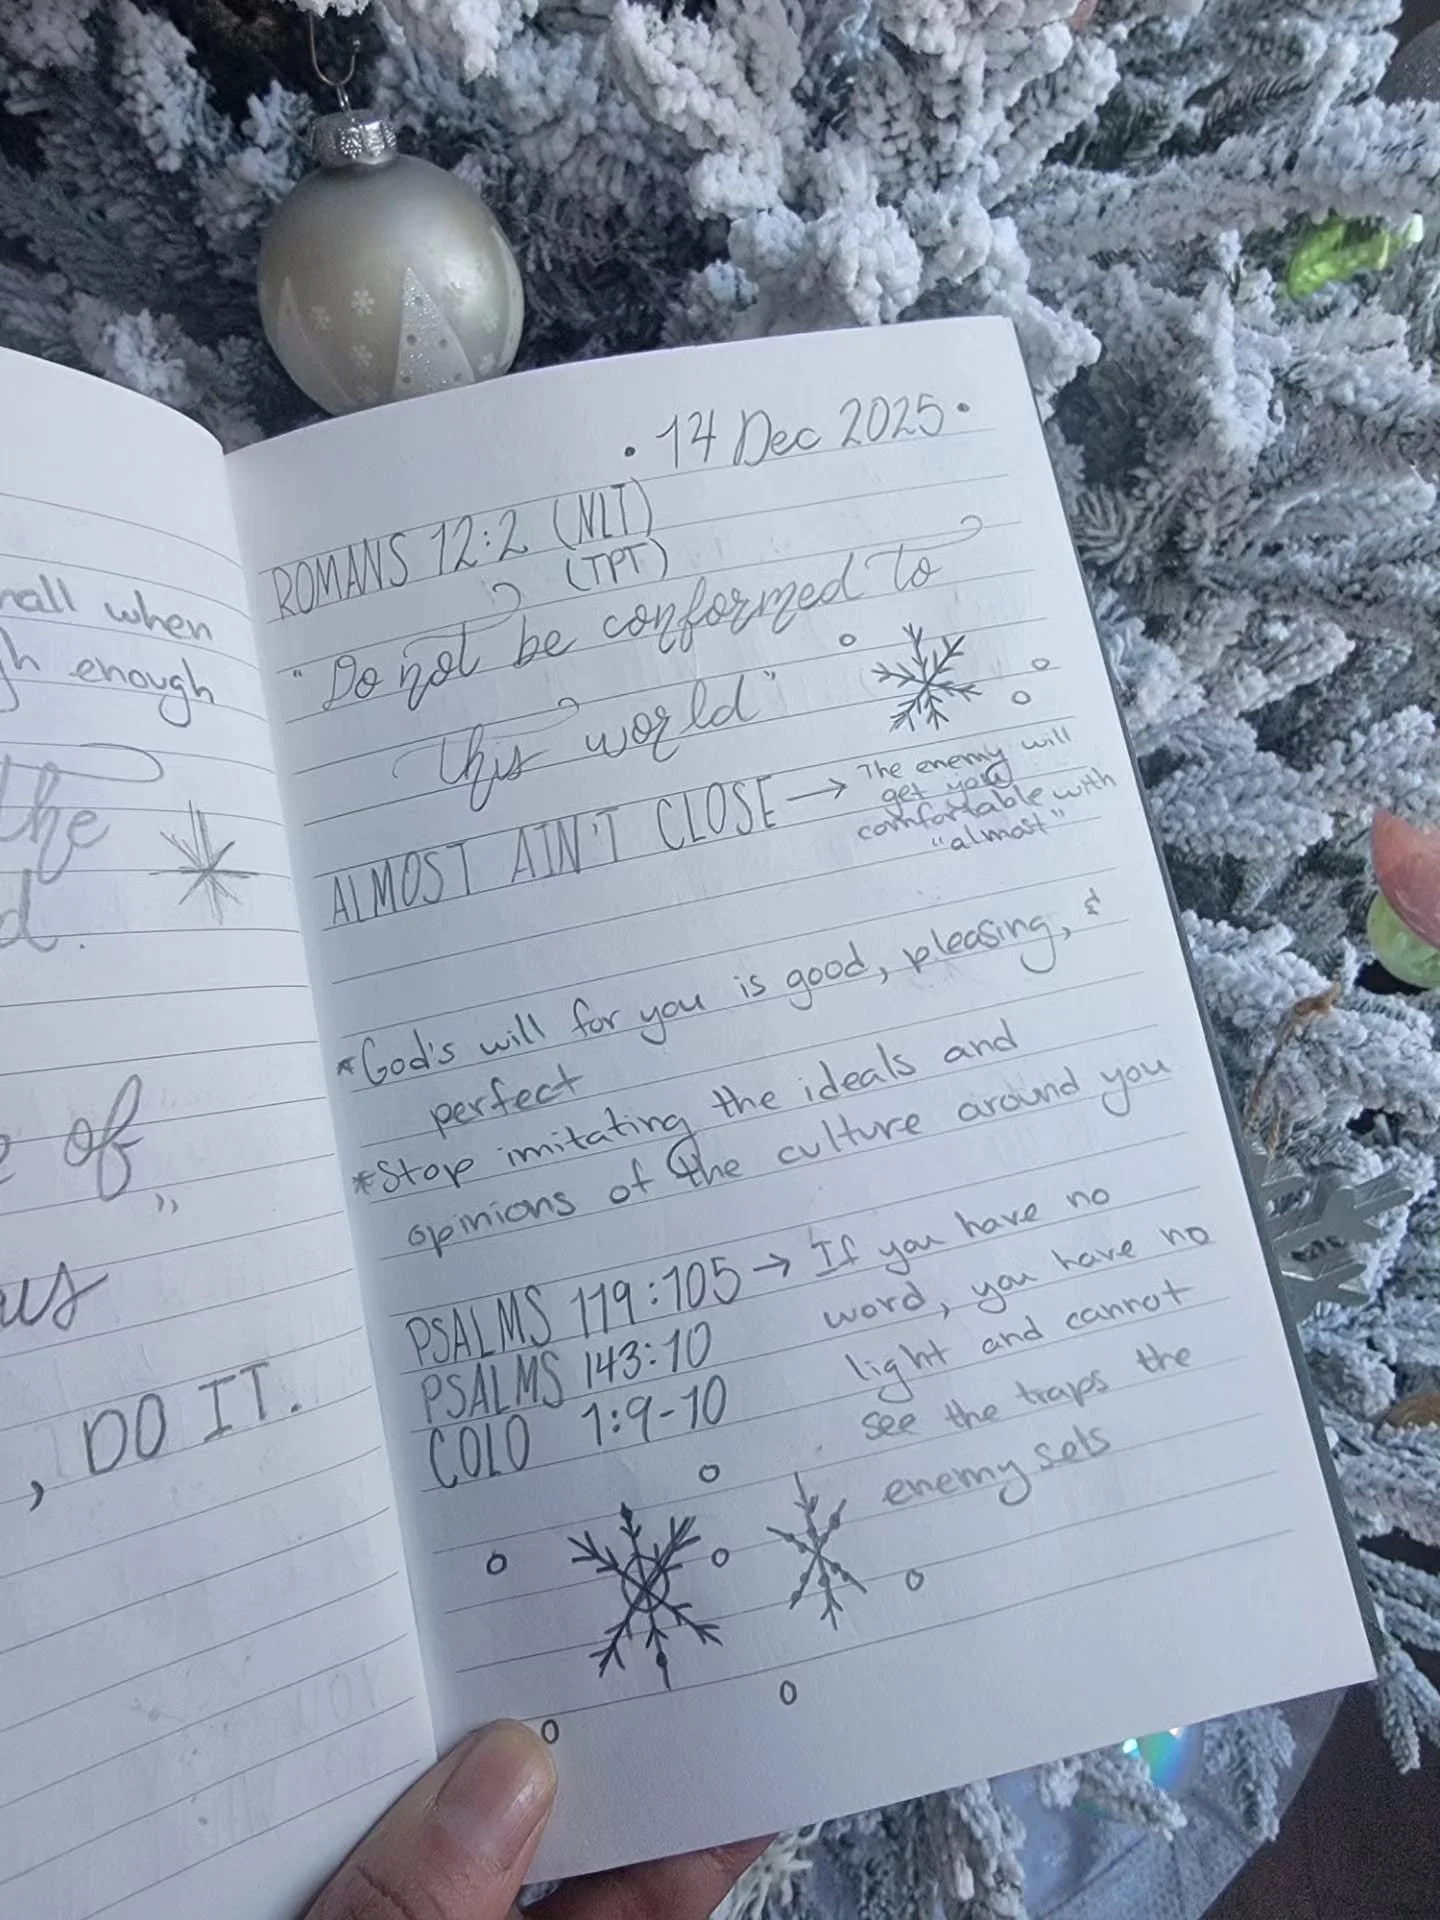 when
enough
the
of
"
, DO IT.
• 14 Dec 2025 •
ROMANS 12:2 (NLT)
(TPT)
"Do not be conformed to
this world"
ALMOST AIN'T CLOSE → The enemy will
get you
comfortable with
"almost"
*God's will for you is good, pleasing, &
perfect
*Stop imitating the ideals and
opinions of the culture around you
PSALMS 119:105 → If you have no
word, you have no
PSALMS 143:10
light and cannot
COLO 1:9-10
see the traps the
enemy sets